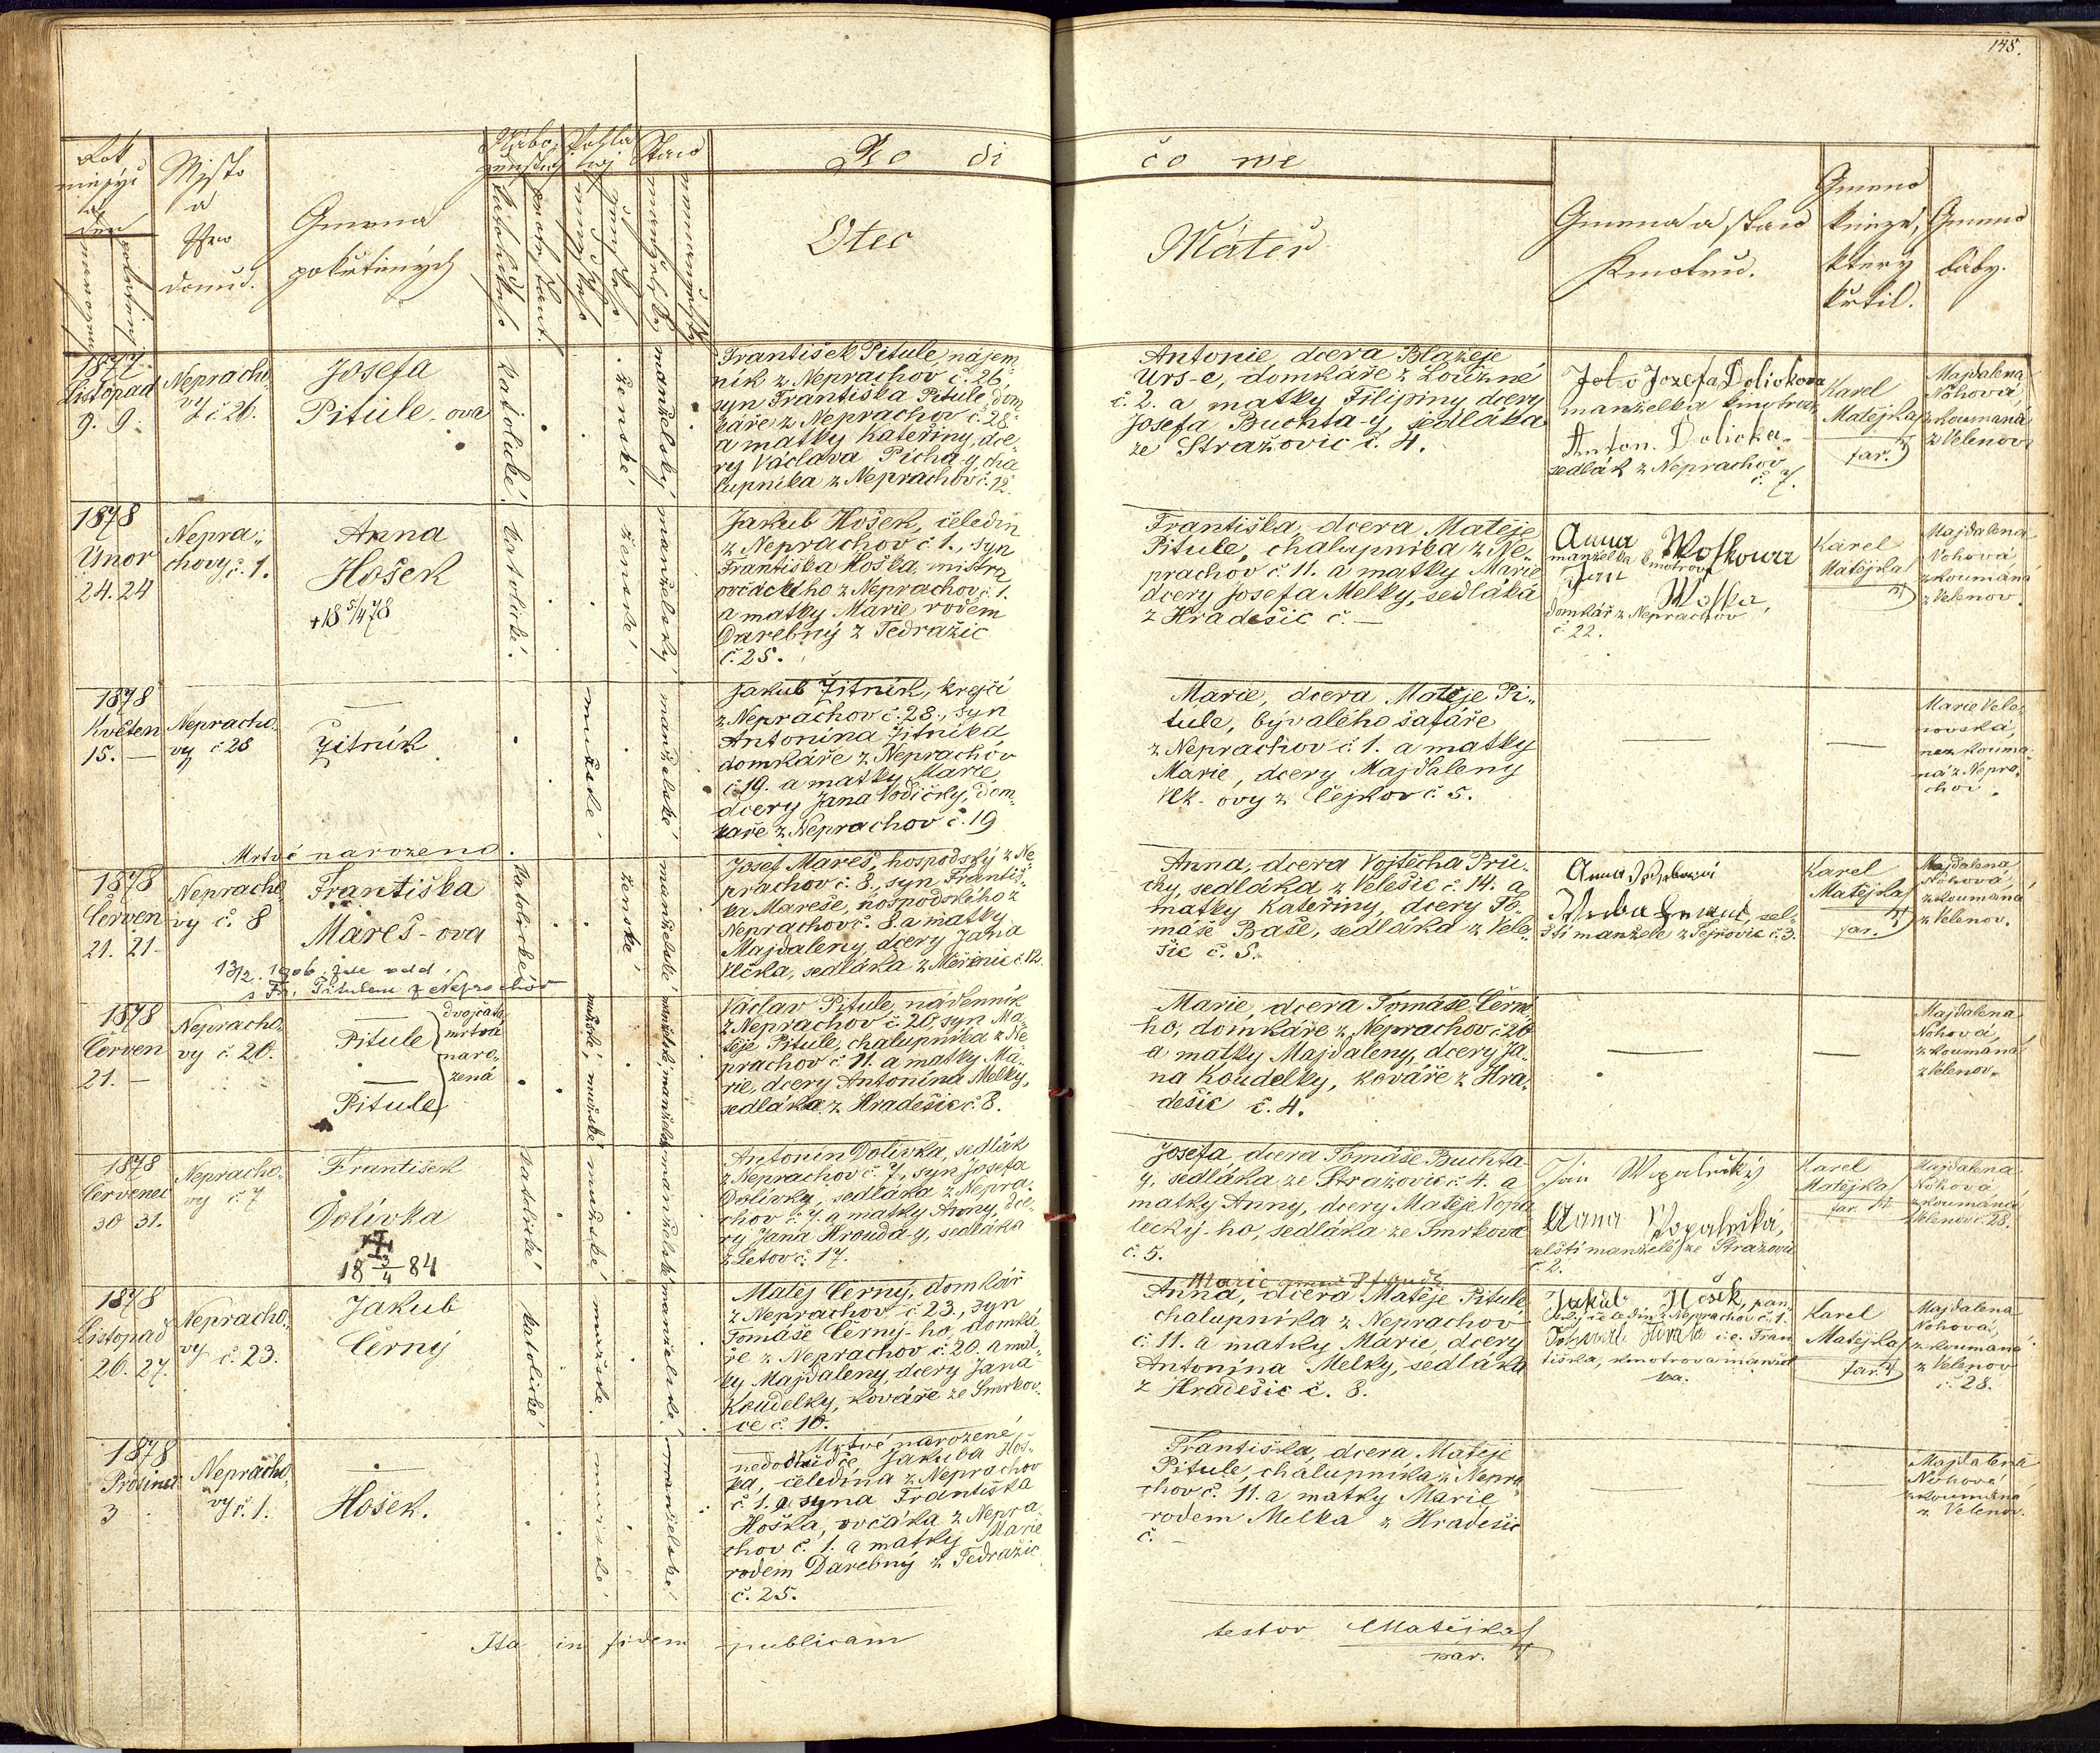 148.
Rok
měsýc
a
den
narozeni
pokřtěni
Mjsto
a
čjslo
domů.
Gmena
pokřtěných
Nábo-
ženstwj
katolického
Pohla-
wj
mužské
ženské
Staw
manželský
nemanželský
Ro di čo we
Otec
Máteř
Gmena a staw
Kmotrů.
Gmeno
kněze,
který
křtil.
Gmeno
báby.
1877
Listopad
9. 9.
Neprocho-
vy
č 26.
Josefa
Pitule-ova
katolické
ženské
manželský
František Pitule, nájem-
ník z Neprachov č. 26,
syn Františka Pitule, dom-
káře z Neprachov č. 28
a matky Kateřiny, dce-
ry Václava Pícha-y, cha-
lupníka z Neprachov č. 12.
Antonie, dcera Blažeje
Urs-e, domkáře z Loužné
č. 2. a matky Filipiny dcery
Josefa Buchta-y, sedláka
ze Stražovic č. 4.
Jozefa Dolivkova
manželka kmotra
Anton. Dolivka
sedlák z Neprachov
č. 7.
Karel
Matějka
far.
Majdalena
Nohová,
zkoumaná
z Velenov
1878
Únor
24. 24
Nepra-
chovy č. 1.
Anna
Hošek
+ 18 5/4 78
katolické.
ženské
manželský
Jakub Hošek, čeledín
z Neprachov č 1., syn
Františka Hoška, mistra
ovčáckého z Neprachov č. 1.
a matky Marie rodem
Darebný z Tedražic
č. 25.
Františka, dcera Matěje
Pitule, chalupníka z Ne-
prachov č 11. a matky Marie
dcery Josefa Melky, sedláka
z Hradešic č. —
Anna Woskowa
manželka kmotrova
Jan
Woska,
domkář z Neprachov
č. 22.
Karel
Matějka
Majdalena
Nohová
zkoumaná
z Velenov.
1878
Květen
15. —
Neprocho-
vy č 28
—
Žitník
mužské
manželské
Jakub Žitník, krejčí
z Neprachov č. 28., syn
Antonína Žitníka
domkáře z Neprachov
č. 19. a matky Marie,
dcery Jana Vodičky, dom-
káře z Neprachov č. 19
Marie, dcera Matěje Pi-
tule, bývalého šafáře
z Neprachov č 1. a matky
Marie, dcery Majdaleny
Vlk-ovy z Čejkov č. 5.
—
—
Marie Vele-
novská,
nezkouma-
ná z Nepra-
chov.
Mrtvě narozeno.
1878
Červen
21. 21
Neprocho-
vy č. 8
Františka
Mareš-ova
13/2. 1906. zde odd.
s Fr. Pitulem z Neprochov
katolické
ženské
manželské
Josef Mareš, hospodský z Ne-
prachov č. 8., syn Františ-
ka Mareše, hospodského z
Neprachov č. 8. a matky
Majdaleny dcery Jana
Vlčka, sedláka z Měřenic č 12.
Anna, dcera Vojtěcha Prů-
chy, sedláka z Velešic č. 14. a
matky Kateřiny, dcery To-
máše Baše, sedláka z Vele-
šic č. 5.
Anna
sel-
ští manželé z č. 3.
Karel
Matějka
far.
Majdalena
Nohová,
zkoumaná
z Velenov.
1878
Červen
21. —
Neprocho-
vy č. 20.
—
Pitule
—
Pitule
dvojčata
mrtvá
naro-
zená
mužské, mužské
manželské, manželské
Václav Pitule, nádenník
z Neprachov č. 20, syn Ma-
těje Pitule, chalupníka z Ne-
prachov č 11. a matky Ma-
rie, dcery Antonína Melky,
sedláka z Hradešic č. 8.
Marie, dcera Tomáše Černé-
ho, domkáře z Neprachov č 20
a matky Majdaleny, dcery Ja-
na Koudelky, kováře z Hra-
dešic č. 4.
—
—
Majdalena
Nohová,
zkoumaná
z Velenov.
1878
Červenec
30 31.
Neprocho-
vy č 7
František
Dolívka
18 3/4 84
katolické
mužské
manželské
Antonín Dolívka, sedlák
z Neprachov č. 7, syn Josefa
Dolívky, sedláka z Nepra-
chov č. 7. a matky Anny, dce-
ry Jana Hrouda-y, sedláka
z Letov č. 17.
Josefa, dcera Tomáše Buchta-
y, sedláka ze Stražovic č. 4. a
matky Anny, dcery Matěje Vopa-
lecký-ho, sedláka ze Smrkova
č. 5.
Jan Wopalecký
Anna Wopalecká,
selští manželé ze Stražovic
č. 2.
Karel
Matějka
far.
Majdalena
Nohová
zkoumaná
Velenov č. 28.
1878
Listopad
26. 27.
Neprocho-
vy č. 23.
Jakub
Černý
katolické
mužské.
manželské
Matěj Černý, domkář
z Neprachov č. 23., syn
Tomáše Černý-ho, domká-
ře z Neprachov č. 20. a mat-
ky Majdaleny, dcery Jana
Koudelky, kováře ze Smrkov-
ce č. 10.
Marie
Anna, dcera Matěje Pitule
chalupníka z Neprachov
č. 11. a matky Marie, dcery
Antonína Melky, sedláka
z Hradešic č. 8.
Jakub Hošek, pan-
ský čeledín z Neprachov č. 1.
i.e. Fran-
tiška, kmotrova manžel-
ka.
Karel
Matějka
far.
Majdalena
Nohová,
zkoumaná
z Velenov
č. 28.
1878
Prosinec
3
Neprocho-
vy č. 1.
—
Hošek.
mužské
manželské
Mrtvě narozené
nedochůdče Jakuba Hoš-
ka, čeledína z Neprachov
č. 1. a syna Františka
Hoška, ovčáka z Nepra-
chov č. 1. a matky Marie
rodem Darebný z Tedražic
č. 25.
Františka, dcera Matěje
Pitule, chalupníka z Nepra-
chov č. 11. a matky Marie
rodem Melka z Hradešic
č. —
—
—
Majdalena
Nohová
zkoumaná
z Velenov.
Ita in fidem publicam testor Matějka
par.